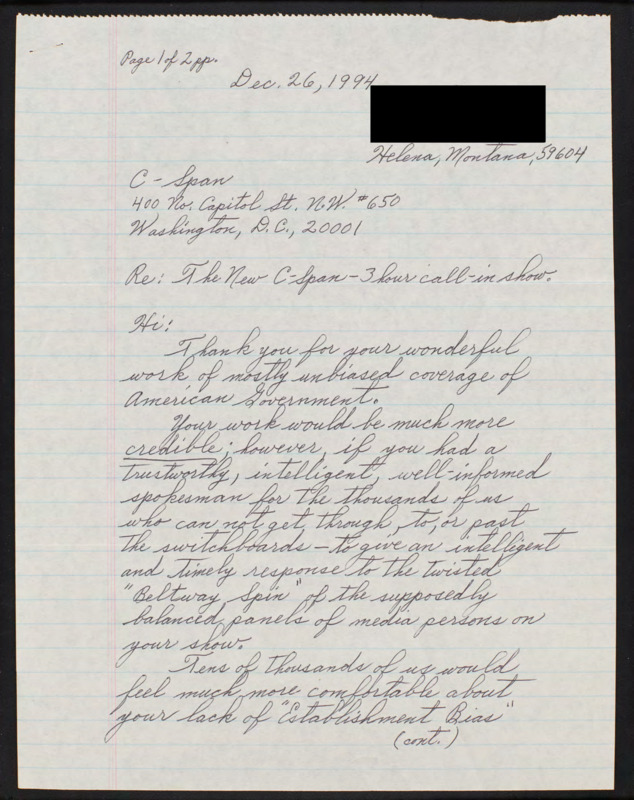 Page 1 of 2 pp.
Dec. 26, 1994
Helena, Montana, 59604
C-Span
400 No. Capitol St. N.W. #650
Washington, D.C., 20001
Re: The New C-Span-3 hour call-in show.
Hi:
Thank you for your wonderful
work of mostly unbiased coverage of
American Government.
Your work would be much more
credible; however, if you had a
trustworthy, intelligent, well-informed
spokesman for the thousands of us
who can not get through, to, or past
the switchboards - to give an intelligent
and timely response to the twisted
"Beltway Spin" of the supposedly
balanced panels of media persons on
your show.
Tens of thousands of us would
feel much more comfortable about
your lack of "Establishment Bias"
(cont.)